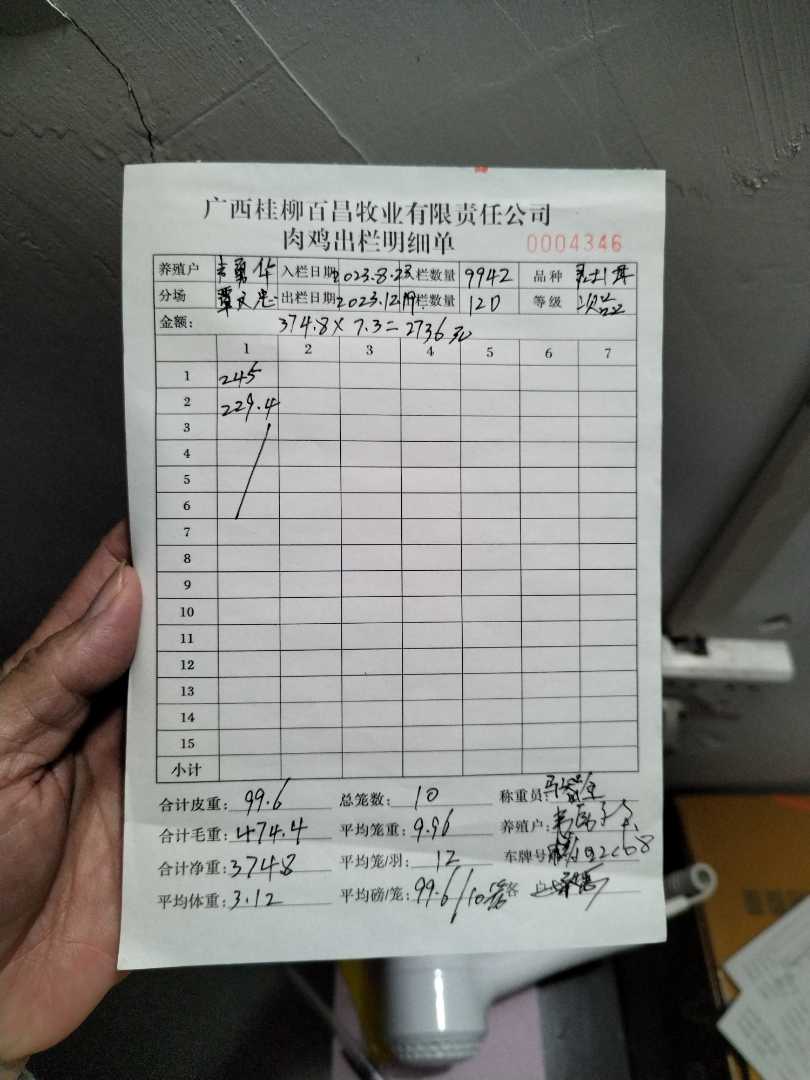 广西桂柳百昌牧业有限责任公司
肉鸡出栏明细单 0004346
养殖户 华 入栏日期 2023.8.23 入栏数量 9942 品种
分场 覃 忠 出栏日期 2023.12.19 出栏数量 120 等级 次品
金额: 374.8 × 7.3 = 2736元
1 2 3 4 5 6 7
1 245
2 229.4
3
4
5
6
7
8
9
10
11
12
13
14
15
小计
合计皮重: 99.6 总笼数: 10 称重员:
合计毛重: 474.4 平均笼重: 9.96 养殖户:
合计净重: 374.8 平均笼/羽: 12 车牌号
平均体重: 3.12 平均磅/笼: 99.6/10笼 客户